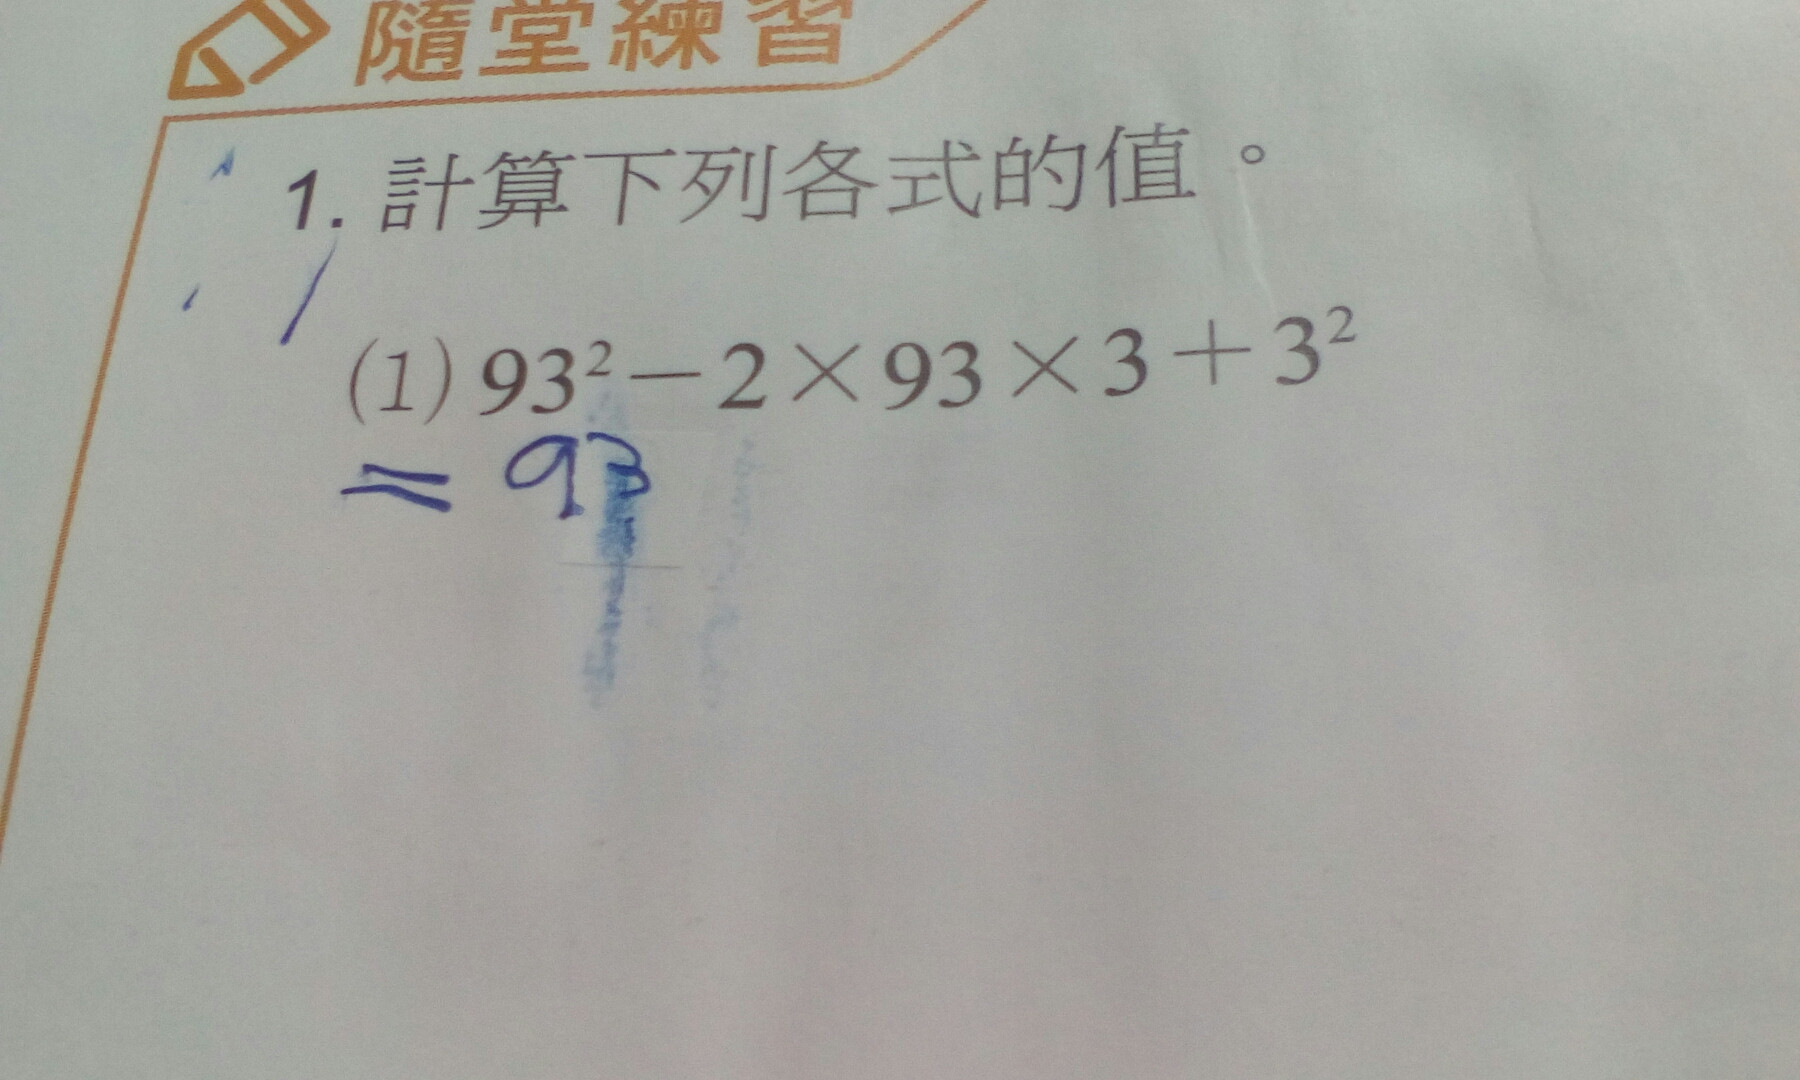 隨堂練習
1. 計算下列各式的值。
(1) 93² − 2 × 93 × 3 + 3²
= 93